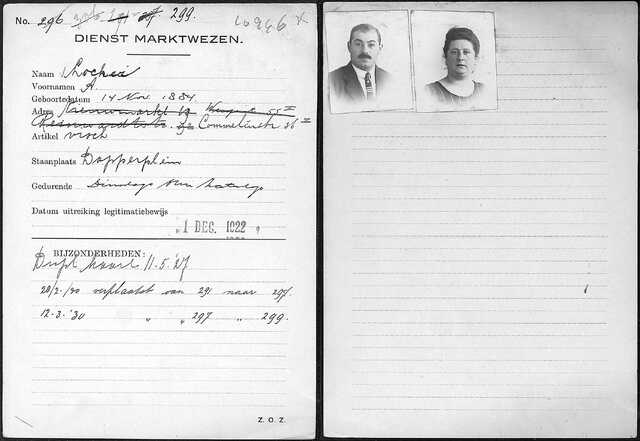 No. 296 299.
DIENST MARKTWEZEN.
Naam
Voornamen A.
Geboortedatum 14 Nov. 1884
Adres Nieuwmarkt
Commelinstr 36
Artikel visch
Staanplaats Dapperplein
Gedurende Dinsdags Zaterdags
Datum uitreiking legitimatiebewijs
1 DEC. 1922
BIJZONDERHEDEN:
Dupl. kaart 11-5-'27
20/2-'30 verplaatst van 291 naar 297.
12-3-'30 " " 297 " 299.
Z. O. Z.